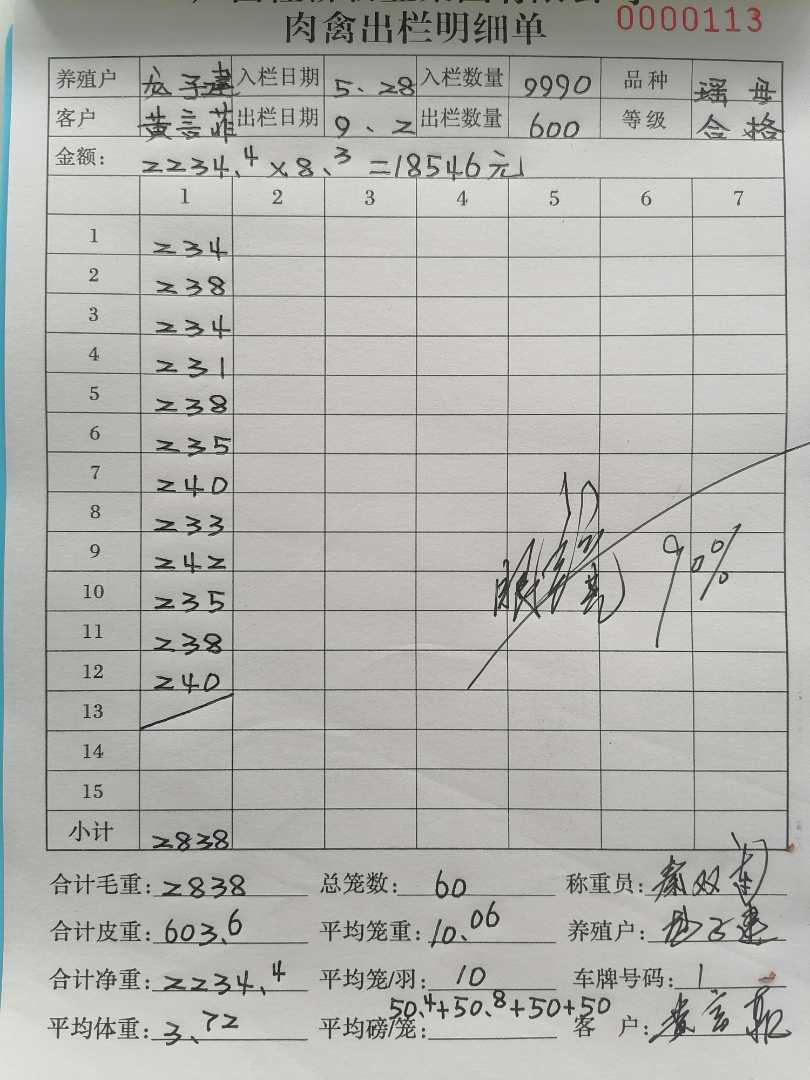 肉禽出栏明细单 0000113
养殖户 龙子建 入栏日期 5.28 入栏数量 9990 品种 瑶母
客户 黄言菲 出栏日期 9.2 出栏数量 600 等级 合格
金额: 2234.4×8.3=18546元
1 2 3 4 5 6 7
1 234
2 238
3 234
4 231
5 238
6 235
7 240
8 233
9 242
10 235
11 238
12 240
13
14
15
90%
小计 2838
合计毛重: 2838 总笼数: 60 称重员: 秦双
合计皮重: 603.6 平均笼重: 10.06 养殖户: 龙子建
合计净重: 2234.4 平均笼/羽: 10 车牌号码: 1
平均体重: 3.72 平均磅/笼: 50.4+50.8+50+50 客 户: 黄言